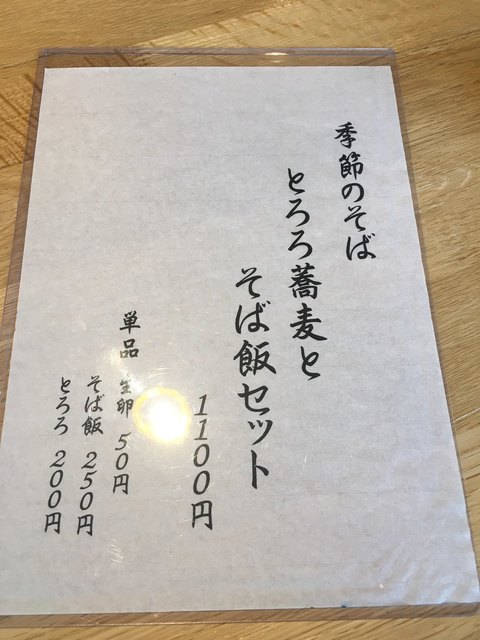 季節のそば
とろろ蕎麦と
そば飯セット
1100円
単品 生卵 50円
そば飯 250円
とろろ 200円